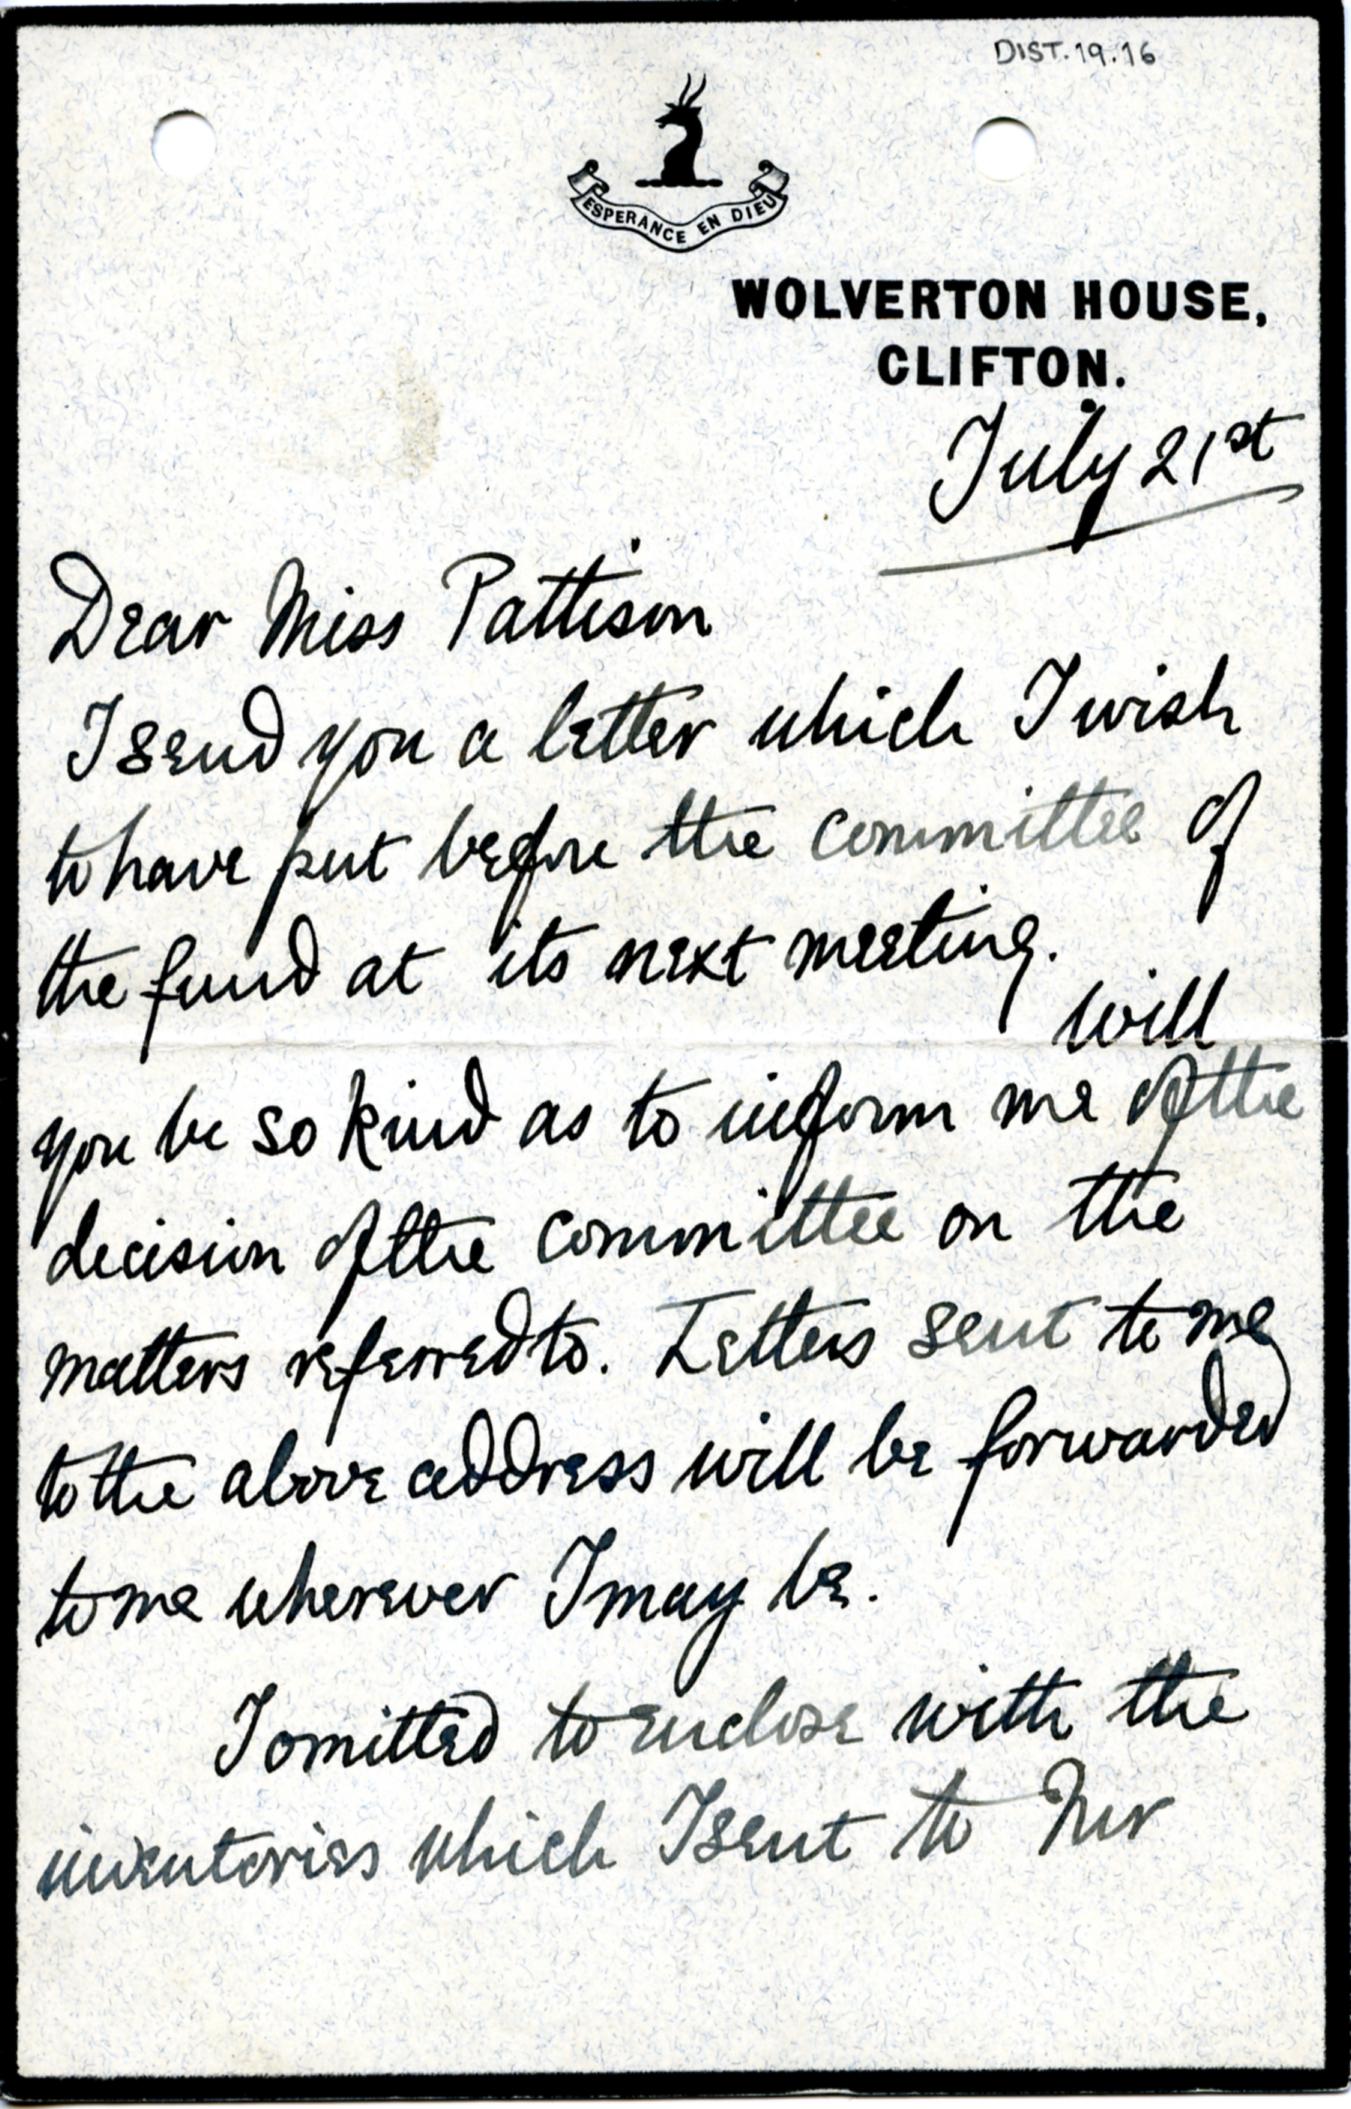 DIST.19.16
ESPERANCE EN DIEU
WOLVERTON HOUSE,
CLIFTON.
July 21st
Dear Miss Pattison
I send you a letter which I wish
to have put before the committee of
the fund at its next meeting.
Will
you be so kind as to inform me of the
decision of the committee on the
matters referred to. Letters sent to me
to the above address will be forwarded
to me wherever I may be.
I omitted to enclose with the
inventories which I sent to Mr